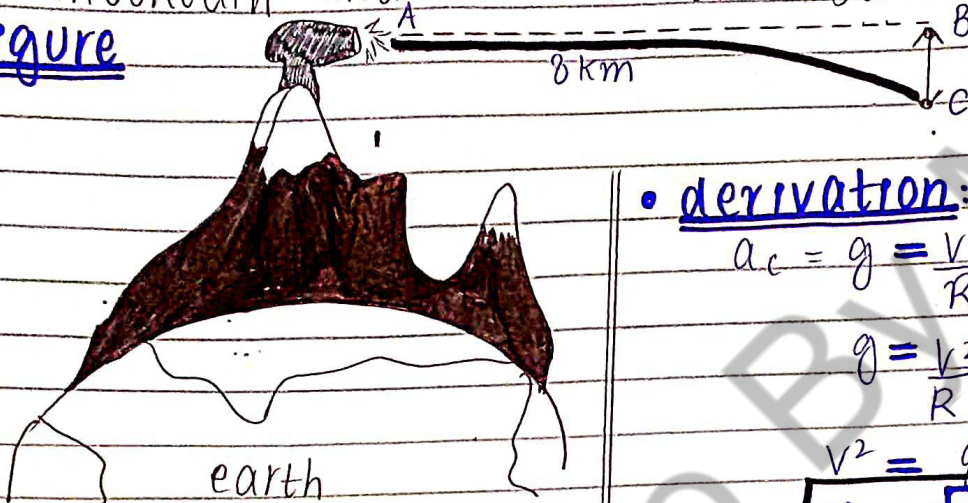 gure
A
B
8 km
C
• derivation:
ac = g = V
R
g = V²
R
V² =
earth